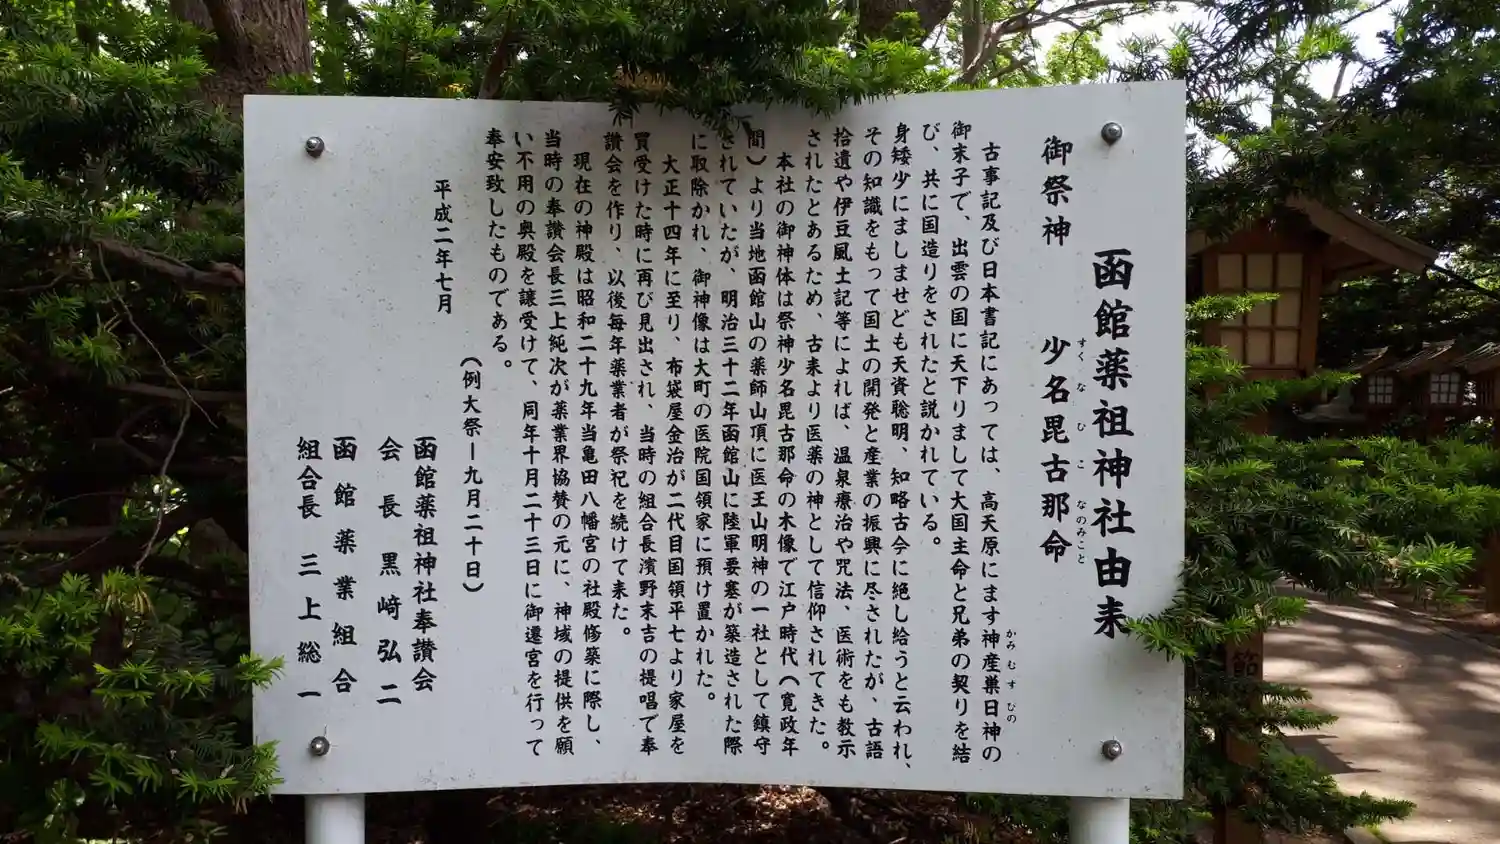 函館薬祖神社由来
御祭神 少名毘古那命
すくなひこなのみこと
古事記及び日本書記にあっては、高天原にます神産巣日神の
かみむすひの
御末子で、出雲の国に天下りまして大国主命と兄弟の契りを結
び、共に国造りをされたと説かれている。
身矮少にましませども天資聡明、知略古今に絶し給うと云われ、
その知識をもって国土の開発と産業の振興に尽されたが、古語
拾遺や伊豆風土記等によれば、温泉療治や咒法、医術をも教示
されたとあるため、古来より医薬の神として信仰されてきた。
本社の御神体は祭神少名毘古那命の木像で江戸時代（寛政年
間）より当地函館山の薬師山頂に医王山明神の一社として鎮守
されていたが、明治三十二年函館山に陸軍要塞が築造された際
に取除かれ、御神像は大町の医院国領家に預け置かれた。
大正十四年に至り、布袋屋金治が二代目国領平七より家屋を
買受けた時に再び見出され、当時の組合長濱野末吉の提唱で奉
讃会を作り、以後毎年薬業者が祭祀を続けて来た。
現在の神殿は昭和二十九年当亀田八幡宮の社殿修築に際し、
当時の奉讃会長三上純次が薬業界協賛の元に、神域の提供を願
い不用の奥殿を譲受けて、同年十月二十三日に御遷宮を行って
奉安致したものである。
（例大祭ー九月二十日）
平成二年七月
函館薬祖神社奉讃会
会長 黒﨑弘二
函館薬業組合
組合長 三上総一